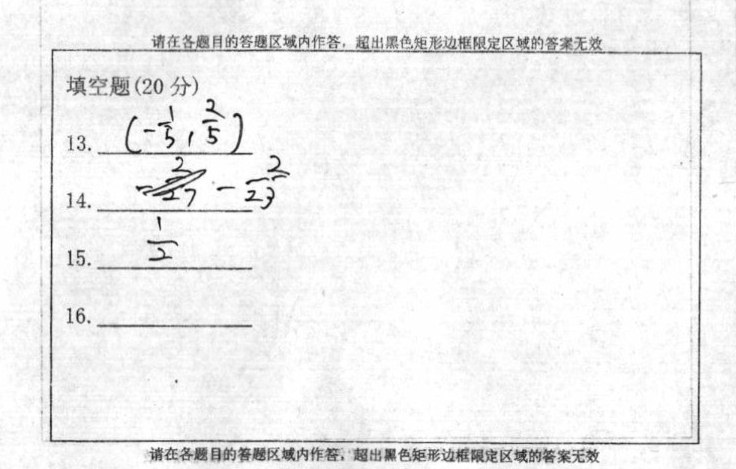 请在各题目的答题区域内作答，超出黑色矩形边框限定区域的答案无效
填空题(20 分)
13. (-1/5, 2/5)
14. -2/23
15. 1/2
16.
请在各题目的答题区域内作答，超出黑色矩形边框限定区域的答案无效